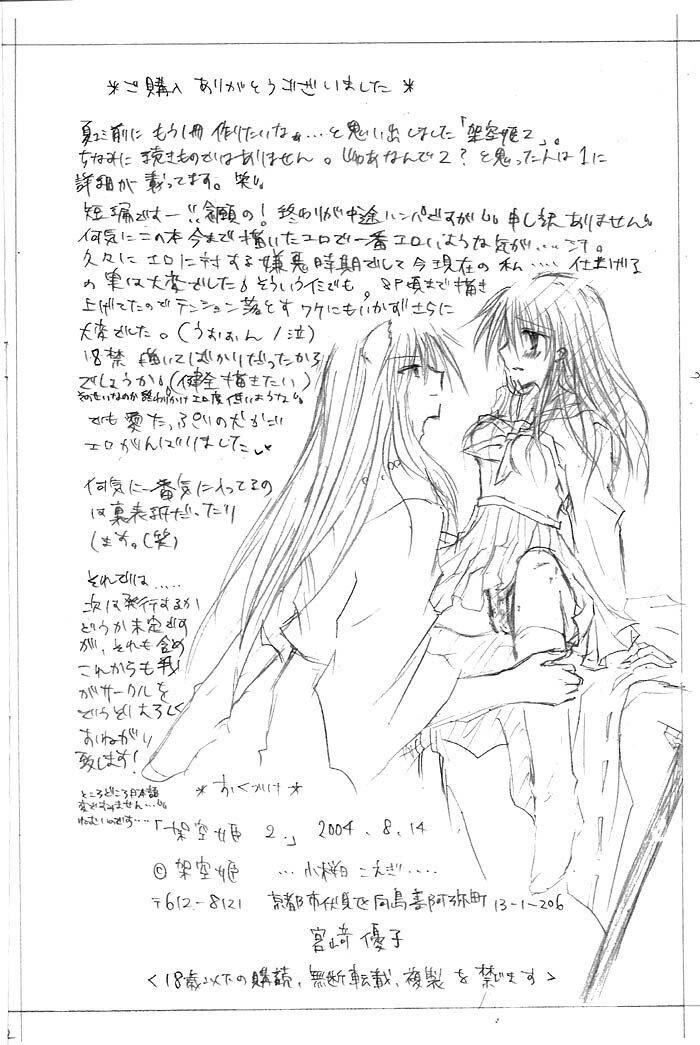 *ご購入 ありがとうございました*
夏コミ前に もう1冊 作りたいなぁ…と思い出しました「架空姫2」。
ちなみに 続きものではありません。じゃあなんで2?と思った人は1に
詳細が 載ってます。笑
短編ですー!!念願の!終わりが中途ハンパですが 申し訳ありません
何気にこの本今まで描いたエロで一番エロいような気が‥‥
久々に エロに対する嫌悪時期でして今現在の私‥‥仕上げる
の実は大変でした そういうイミでも。8P頃まで描き
上げてたのでテンション落とす ワケにもいかずさらに
大変でした。(うおぉん/泣)
18禁 描いてばかりだったから
でしょうか (健全描きたい)
でも愛たっぷり
エロがんばりました
何気に一番気に入ってるの
は裏表紙だったり
します。(笑)
それでは‥‥‥
次は発行するか
どうか未定です
が、それも含め
これからも我
がサークルを
どうぞよろしく
おねがい
致します!
ところどころ日本語
変ですみません‥‥
ねむいのです‥‥
*おくづけ*
「架空姫 2.」 2004.8.14
© 架空姫 …小桜 こえぎ‥‥
〒612-8121 京都市伏見区向島善阿弥町13-1-206
宮崎 優子
<18歳以下の購読、無断転載、複製を禁じます>